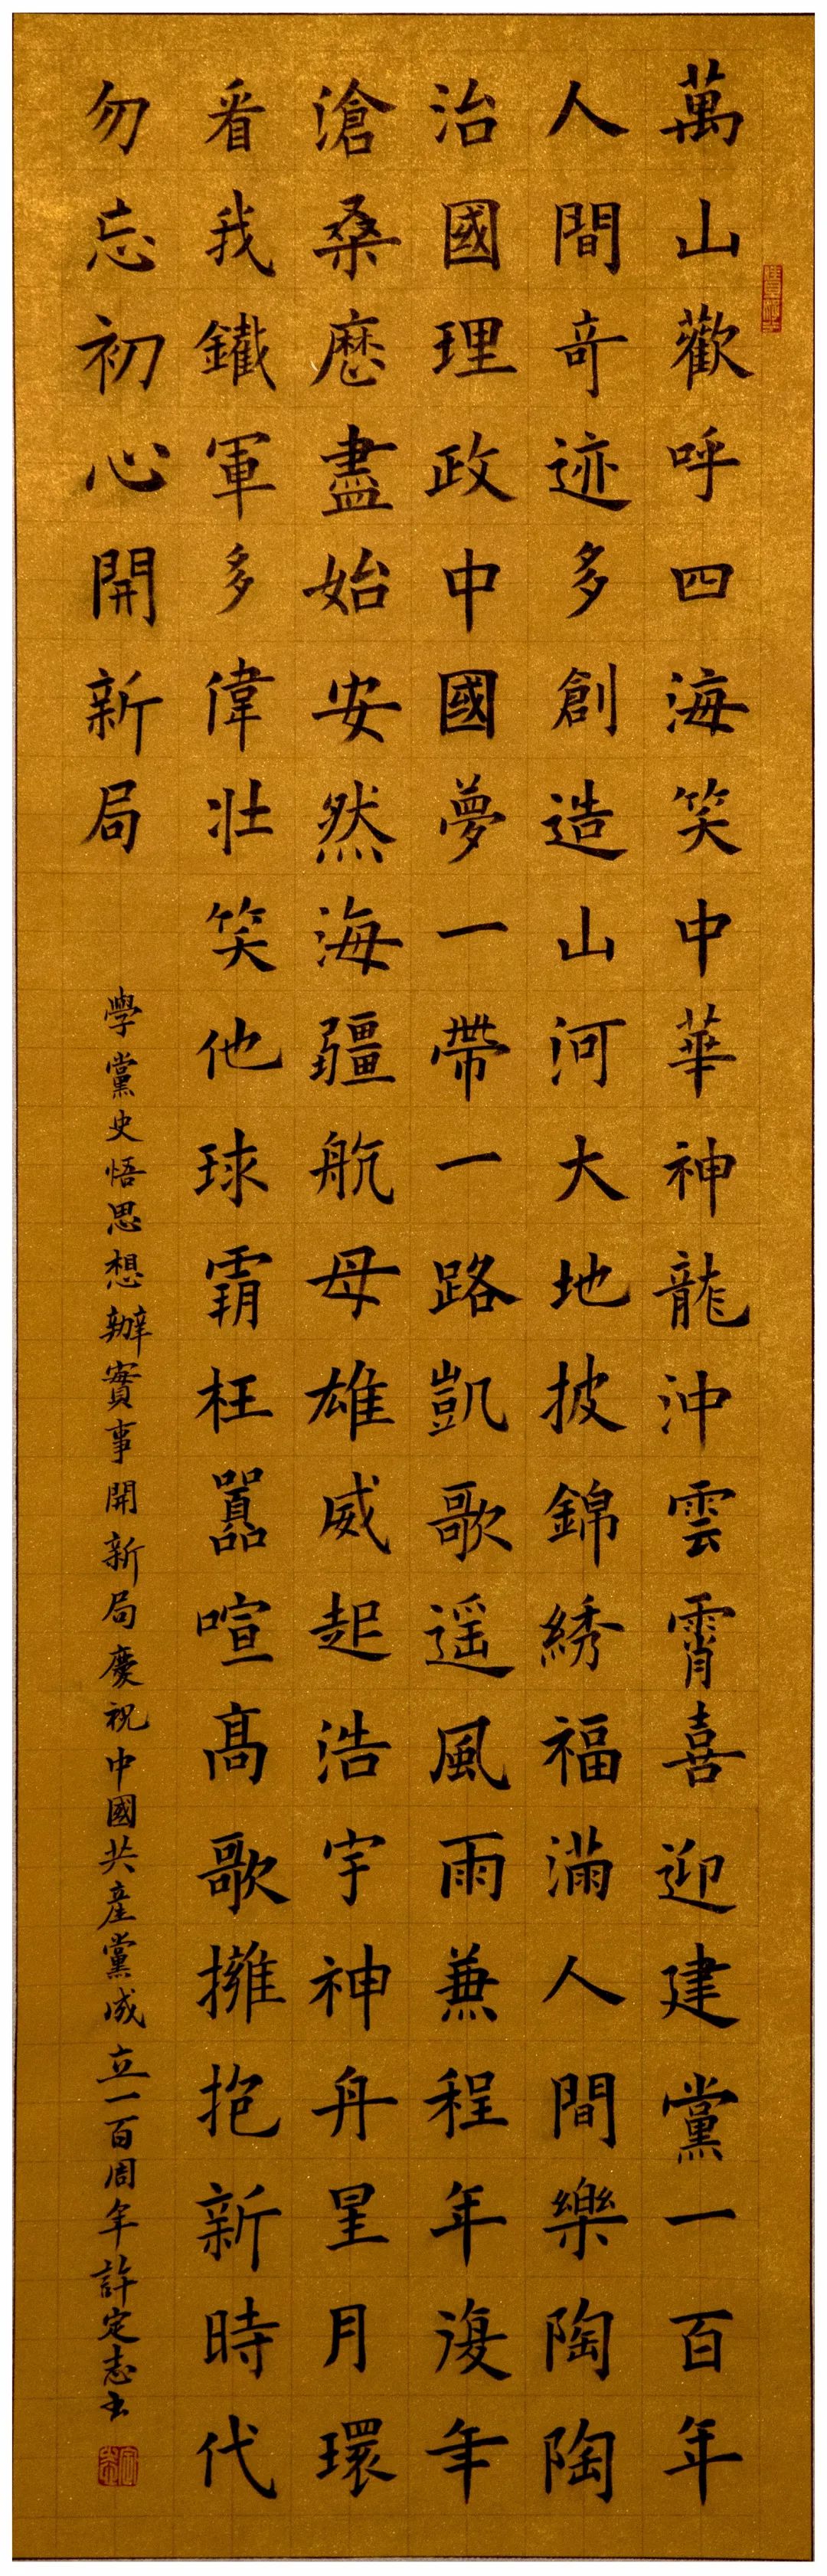 萬山歡呼四海笑中華神龍沖雲霄喜迎建黨一百年
人間奇迹多創造山河大地披錦綉福滿人間樂陶陶
治國理政中國夢一帶一路凱歌遥風雨兼程年復年
滄桑歷盡始安然海疆航母雄威起浩宇神舟星月環
看我鐵軍多偉壯笑他球霸枉囂喧高歌擁抱新時代
勿忘初心開新局
學黨史悟思想辦實事開新局慶祝中國共產黨成立一百周年許定志書